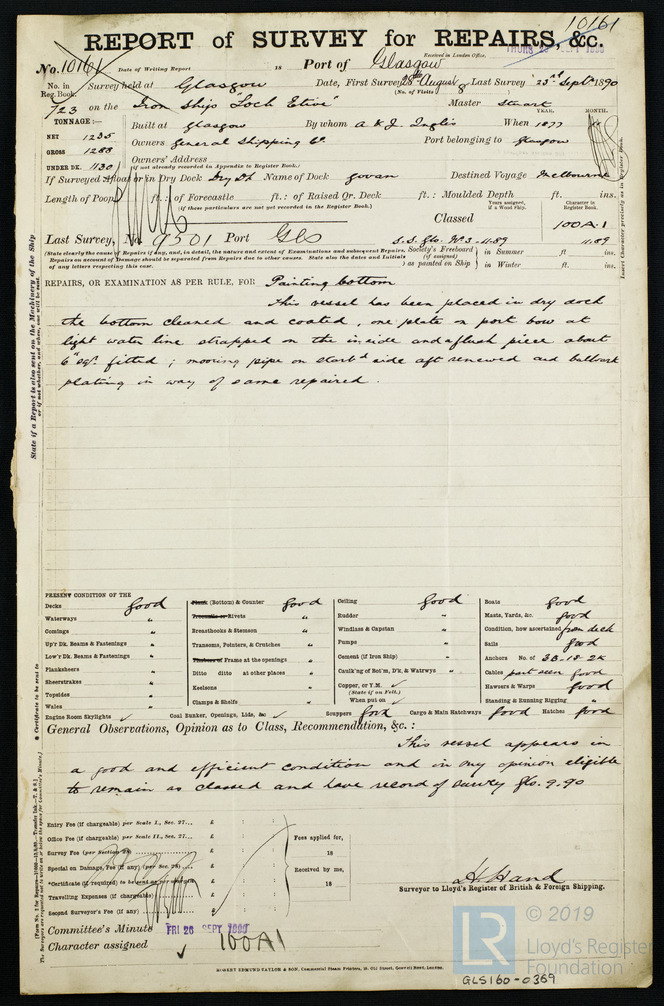 10161
REPORT of SURVEY for REPAIRS, &c.
Received in London Office.
THURS 25 SEPT 1890
No. 10161 Date of Writing Report 18 Port of Glasgow
No. in Reg. Book. Survey held at Glasgow Date, First Survey 28th August Last Survey 23rd Septr 1890
(No. of Visits)
723 on the Iron Ship "Loch Etive" Master Stuart
TONNAGE:— YEAR. MONTH.
Built at Glasgow By whom A & J. Inglis When 1877
NET 1235
GROSS 1288
UNDER DK. 1130
Owners General Shipping Co. Port belonging to Glasgow
Owners' Address
(if not already recorded in Appendix to Register Book.)
If Surveyed Afloat or in Dry Dock Dry Dk Name of Dock Govan Destined Voyage Melbourne
Length of Poop ft.: of Forecastle ft.: of Raised Qr. Deck ft.: Moulded Depth ft. ins.
(if these particulars are not yet recorded in the Register Book.)
Years assigned, if a Wood Ship. Character in Register Book.
Classed 100A.1
Last Survey, No. 9501 Port Gls S.S. Gls. No 3 - 11.89 11.89
(State clearly the cause of Repairs if any, and, in detail, the nature and extent of Examinations and subsequent Repairs.
Repairs on account of Damage should be separated from Repairs due to other causes. State also the dates and Initials
of any letters respecting this case.
Society's Freeboard (if assigned) as painted on Ship in Summer ft. ins.
in Winter ft. ins.
REPAIRS, OR EXAMINATION AS PER RULE, FOR Painting bottom
This vessel has been placed in dry dock
the bottom cleaned and coated, one plate on port bow at
light water line strapped on the inside and a flush piece about
6" sqr. fitted; mooring pipe on starbd side aft renewed and bulwark
plating in way of same repaired.
PRESENT CONDITION OF THE
Decks Good
Waterways "
Comings "
Up'r Dk. Beams & Fastenings "
Low'r Dk. Beams & Fastenings "
Planksheers "
Sheerstrakes "
Topsides "
Wales "
Engine Room Skylights ✓
Plank (Bottom) & Counter Good
Treenails or Rivets "
Breasthooks & Stemson "
Transoms, Pointers, & Crutches "
Timbers or Frame at the openings "
Ditto ditto at other places "
Keelsons "
Clamps & Shelfs "
Coal Bunker, Openings, Lids, &c ✓
Ceiling Good
Rudder "
Windlass & Capstan "
Pumps "
Cement (if Iron Ship) "
Caulk'ng of Bot'm, D'k, & Watrwys "
Copper, or Y.M. ✓
(State if on Felt.)
When put on ✓
Scuppers Good Cargo & Main Hatchways Good Hatches Good
Boats Good
Masts, Yards, &c. Good
Condition, how ascertained from deck
Sails Good
Anchors No. of 3B. 1S. 2K
Cables part seen Good
Hawsers & Warps Good
Standing & Running Rigging "
General Observations, Opinion as to Class, Recommendation, &c. :
This vessel appears in
a good and efficient condition and in my opinion eligible
to remain as classed and have record of survey Gls. 9.90
Entry Fee (if chargeable) per Scale I., Sec. 27... £ : :
Office Fee (if chargeable) per Scale II., Sec. 27... £ : :
Survey Fee (per Section 28) £ : :
Special on Damage, Fee (if any) (per Sec. 28) £ : :
*Certificate (if required) to be sent as per margin £ : :
Travelling Expenses (if chargeable) £ : :
Second Surveyor's Fee (if any) £ : :
Fees applied for, 18
Received by me, 18
H. Hand
Surveyor to Lloyd's Register of British & Foreign Shipping.
Committee's Minute FRI 26 SEPT 1890
Character assigned 100A1
ROBERT EDMUND TAYLOR & SON, Commercial Steam Printers, 19, Old Street, Goswell Road, London.
State if a Report is also sent on the Machinery of the Ship
or if not, whether, and when, one will be sent.
Insert Character precisely as in Register Book.
© 2019
LR
Lloyd's Register
Foundation
GLS160-0369